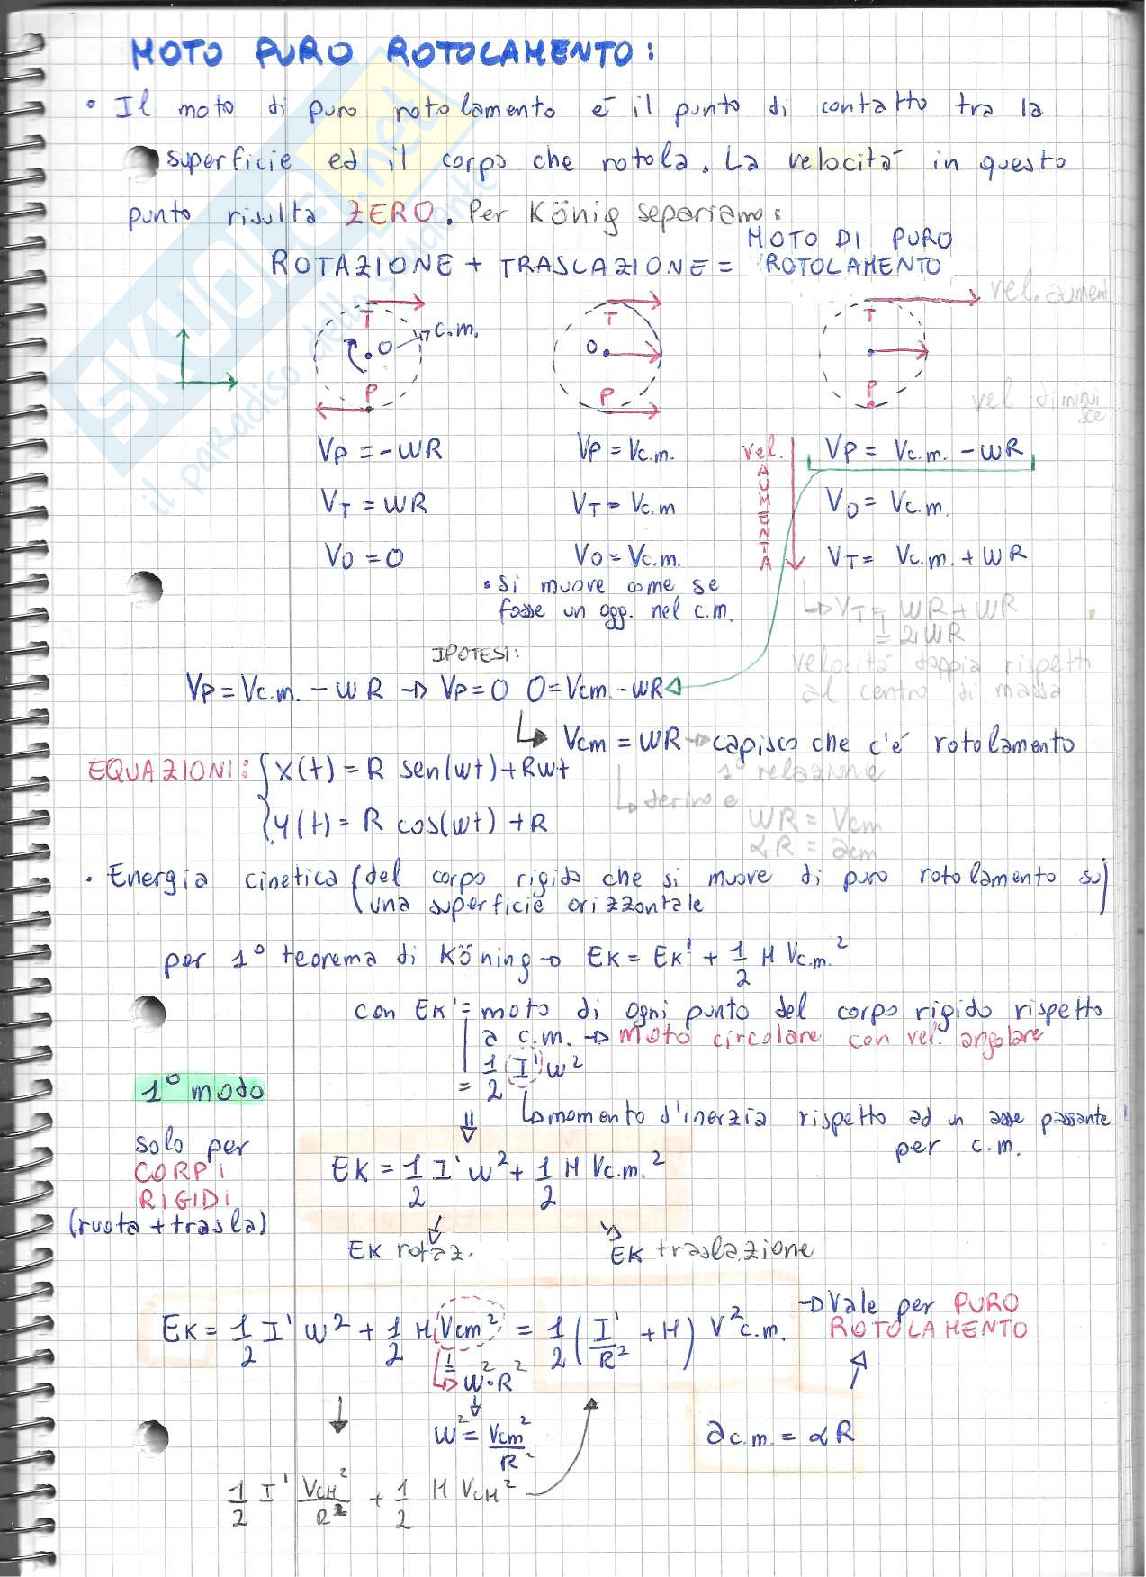 MOTO PURO ROTOLAMENTO:
• Il moto di puro rotolamento è il punto di contatto tra la
superficie ed il corpo che rotola. La velocità in questo
punto risulta ZERO. Per König separiamo:
ROTAZIONE + TRASLAZIONE = MOTO DI PURO ROTOLAMENTO
T O c.m. P
T O P
T P
vel. aumen
vel diminuisce
SKUOLA.net
il paradiso dello studente
Vp = -WR
Vp = Vc.m.
Vp = Vc.m. - WR
VT = WR
VT = Vc.m
VO = Vc.m.
VO = 0
VO = Vc.m.
VT = Vc.m. + WR
vel. AUMENTA
• Si muove come se
fosse un ogg. nel c.m.
→ VT = WR + WR
= 2WR
velocità doppia rispett
al centro di massa
IPOTESI:
Vp = Vc.m. - WR → Vp = 0 0 = Vcm - WR
↳ Vcm = WR → capisco che c'è rotolamento
1° relazione
↳ derivo e
WR = Vcm
αR = acm
EQUAZIONI: { X(t) = R sen(wt) + Rwt
Y(t) = R cos(wt) + R
• Energia cinetica (del corpo rigido che si muove di puro rotolamento su
una superficie orizzontale)
per 1° teorema di Köning → EK = EK' + 1/2 M Vc.m.²
con EK' = moto di ogni punto del corpo rigido rispetto
a c.m. → moto circolare con vel. angolare
= 1/2 I' w²
↳ momento d'inerzia rispetto ad un asse passante
per c.m.
1° modo
solo per
CORPI
RIGIDI
(ruota + trasla)
⇓
EK = 1/2 I' w² + 1/2 M Vc.m.²
EK rotaz.
EK traslazione
EK = 1/2 I' w² + 1/2 M Vcm² = 1/2 (I'/R² + M) V²c.m.
→ Vale per PURO
ROTOLAMENTO
= w²·R²
w² = Vcm²/R²
ac.m. = αR
1/2 I' VCM²/R² + 1/2 M VCM²